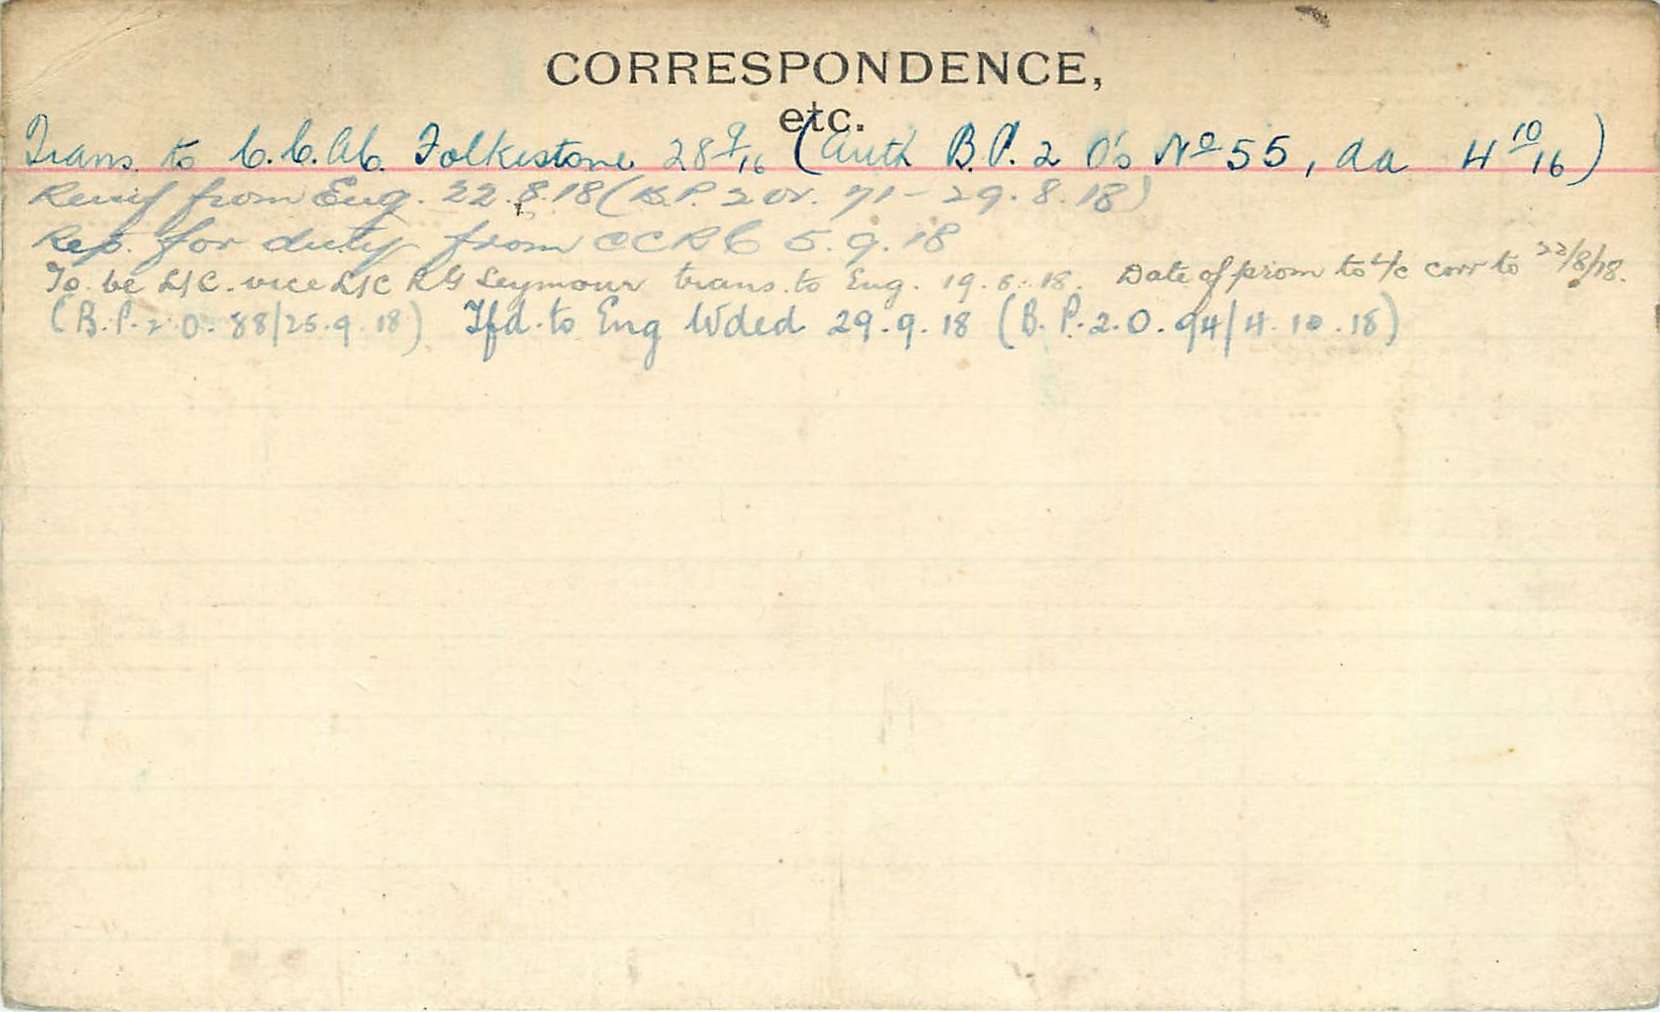 CORRESPONDENCE,
etc.
Trans. to C.C.Ab. Folkestone 28 9/16 (Auth B.P. 2 O's No 55, dd 4 10/16)
Reinf from Eng. 22.8.18 (B.P. 2 Or. 71 - 29.8.18)
Rep. for duty from CCRC 5.9.18
To be L/C. vice L/C R G Seymour trans. to Eng. 19.6.18. Date of prom to L/c corr to 22/8/18.
(B.P. 2. O. 88/25.9.18) Tfd. to Eng Wded 29.9.18 (B.P. 2. O. 94/4.10.18)